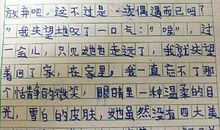 放弃吧，这不过是一我偶遇而已吗？
"我失望地叹了一口气："唉"，过
一会儿，只见她已走远了，我就失望
着回了家，在家里，我一直忘不了那
个恬静的微笑，眼睛里一种温柔的目
光，雪白的皮肤，她虽然没有四大美